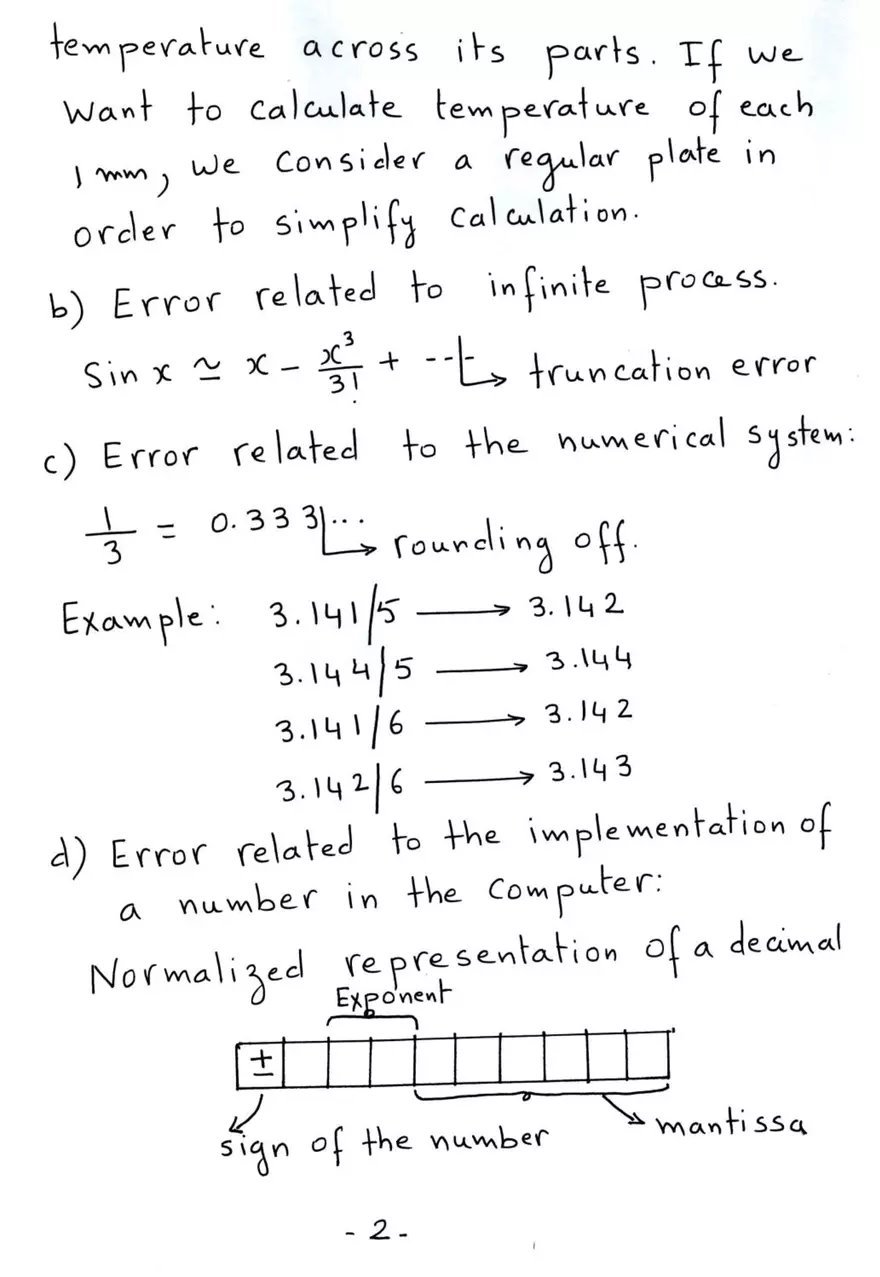 temperature across its parts. If we
want to calculate temperature of each
1 mm, we consider a regular plate in
order to simplify calculation.
b) Error related to infinite process.
Sin x ≃ x - x³/3! + --- ↳ truncation error
c) Error related to the numerical system:
1/3 = 0.333|... ↳ rounding off.
Example: 3.141/5 → 3.142
3.144/5 → 3.144
3.141/6 → 3.142
3.142/6 → 3.143
d) Error related to the implementation of
a number in the computer:
Normalized representation of a decimal
Exponent
±
mantissa
sign of the number
- 2 -